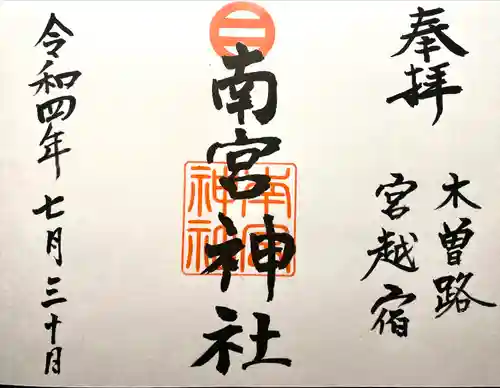 奉拝
木曽路
宮越宿
南宮神社
南宮
神社
令和四年 七月三十日